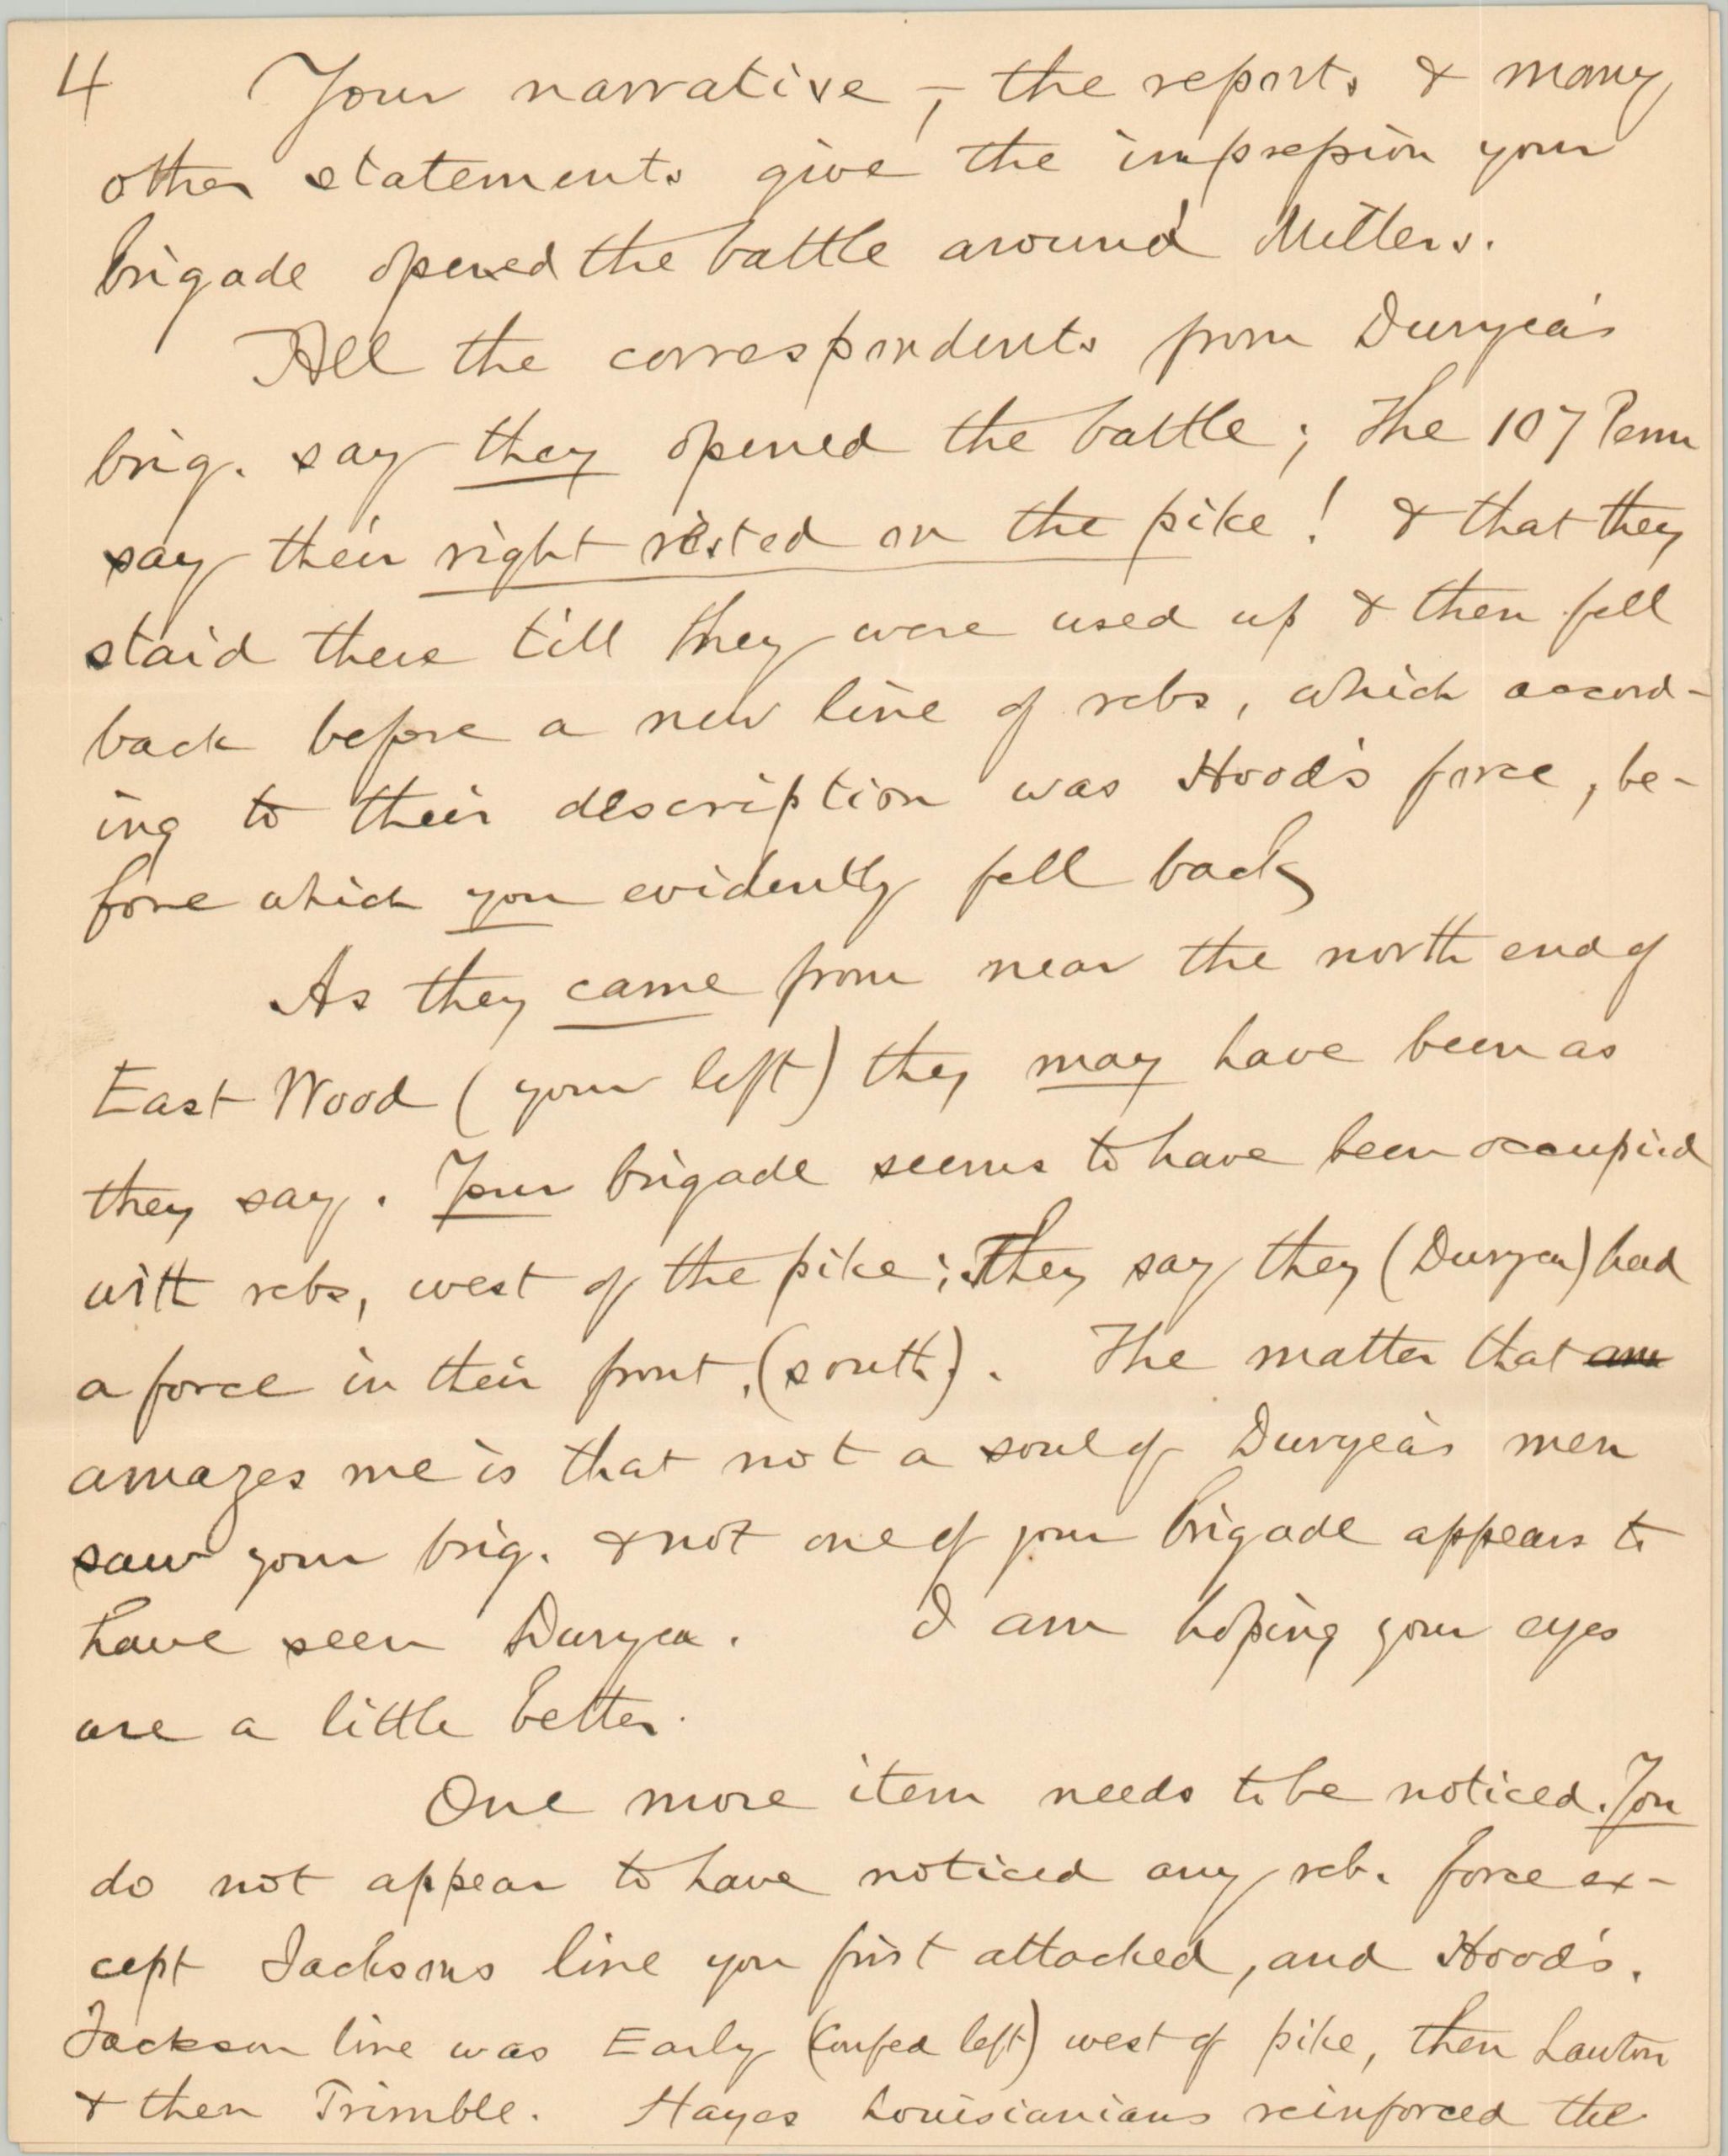 4 Your narrative, – the reports & many
other statements give the impression your
brigade opened the battle around Millers.
All the correspondents from Duryea's
brig. say they opened the battle; The 107 Penn
say their right rested on the pike! & that they
staid there till they were used up & then fell
back before a new line of rebs, which accord-
ing to their description was Hood's force, be-
fore which you evidently fell back
As they came from near the north end of
East Wood (your left) they may have been as
they say. Your brigade seems to have been occupied
with rebs, west of the pike; They say they (Duryea) had
a force in their front, (south). The matter that am
amazes me is that not a soul of Duryea's men
saw your brig. & not one of your brigade appears to
have seen Duryea. I am hoping your eyes
are a little better.
One more item needs to be noticed. You
do not appear to have noticed any reb. force ex-
cept Jacksons line you first attacked, and Hood's.
Jackson line was Early (Confed left) west of pike, then Lawton
& then Trimble. Hayes Louisianians reinforced the